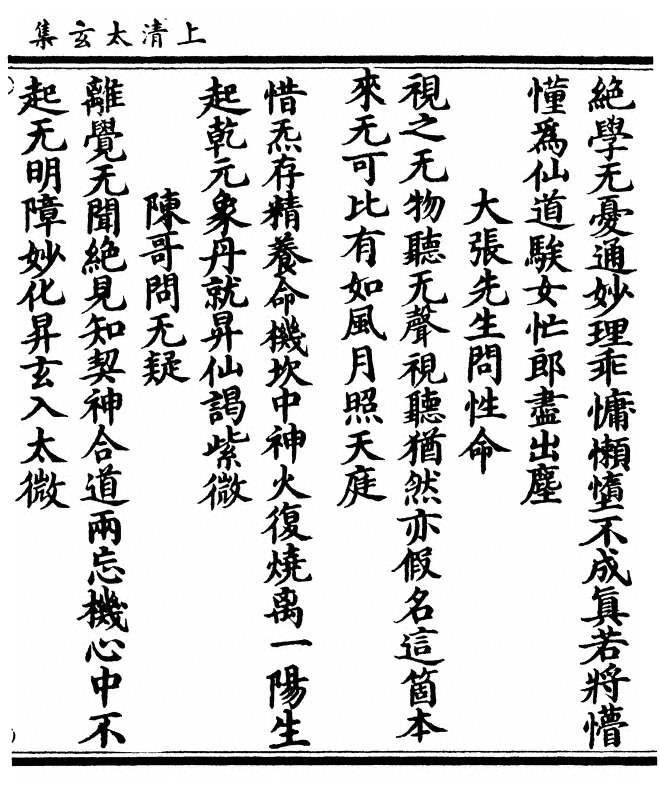 上清太玄集
絕學无憂通妙理乖慵懶墮不成眞若將懵
懂爲仙道騃女忙郎盡出塵
大張先生問性命
視之无物聽无聲視聽猶然亦假名這箇本
來无可比有如風月照天庭
惜炁存精養命機坎中神火復燒离一陽生
起乾元象丹就昇仙謁紫微
陳哥問无疑
離覺无聞絕見知契神合道兩忘機心中不
起无明障妙化昇玄入太微